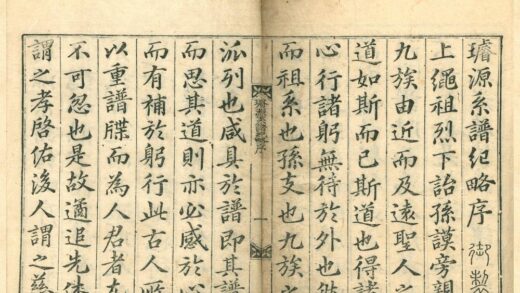 璿源系譜紀略序 御製
上繩祖烈下詒孫謨旁親
九族由近而及遠聖人之
道如斯而已斯道也得諸
心行諸躬無待於外也
而祖系也孫支也九族之
序
一
派列也咸具於譜即其譜
而思其道則亦必感於心
而有補於躬行此古人所
以重譜牒而為人君者
不可忽也是故遹追先
謂之孝啓佑後人謂之慈